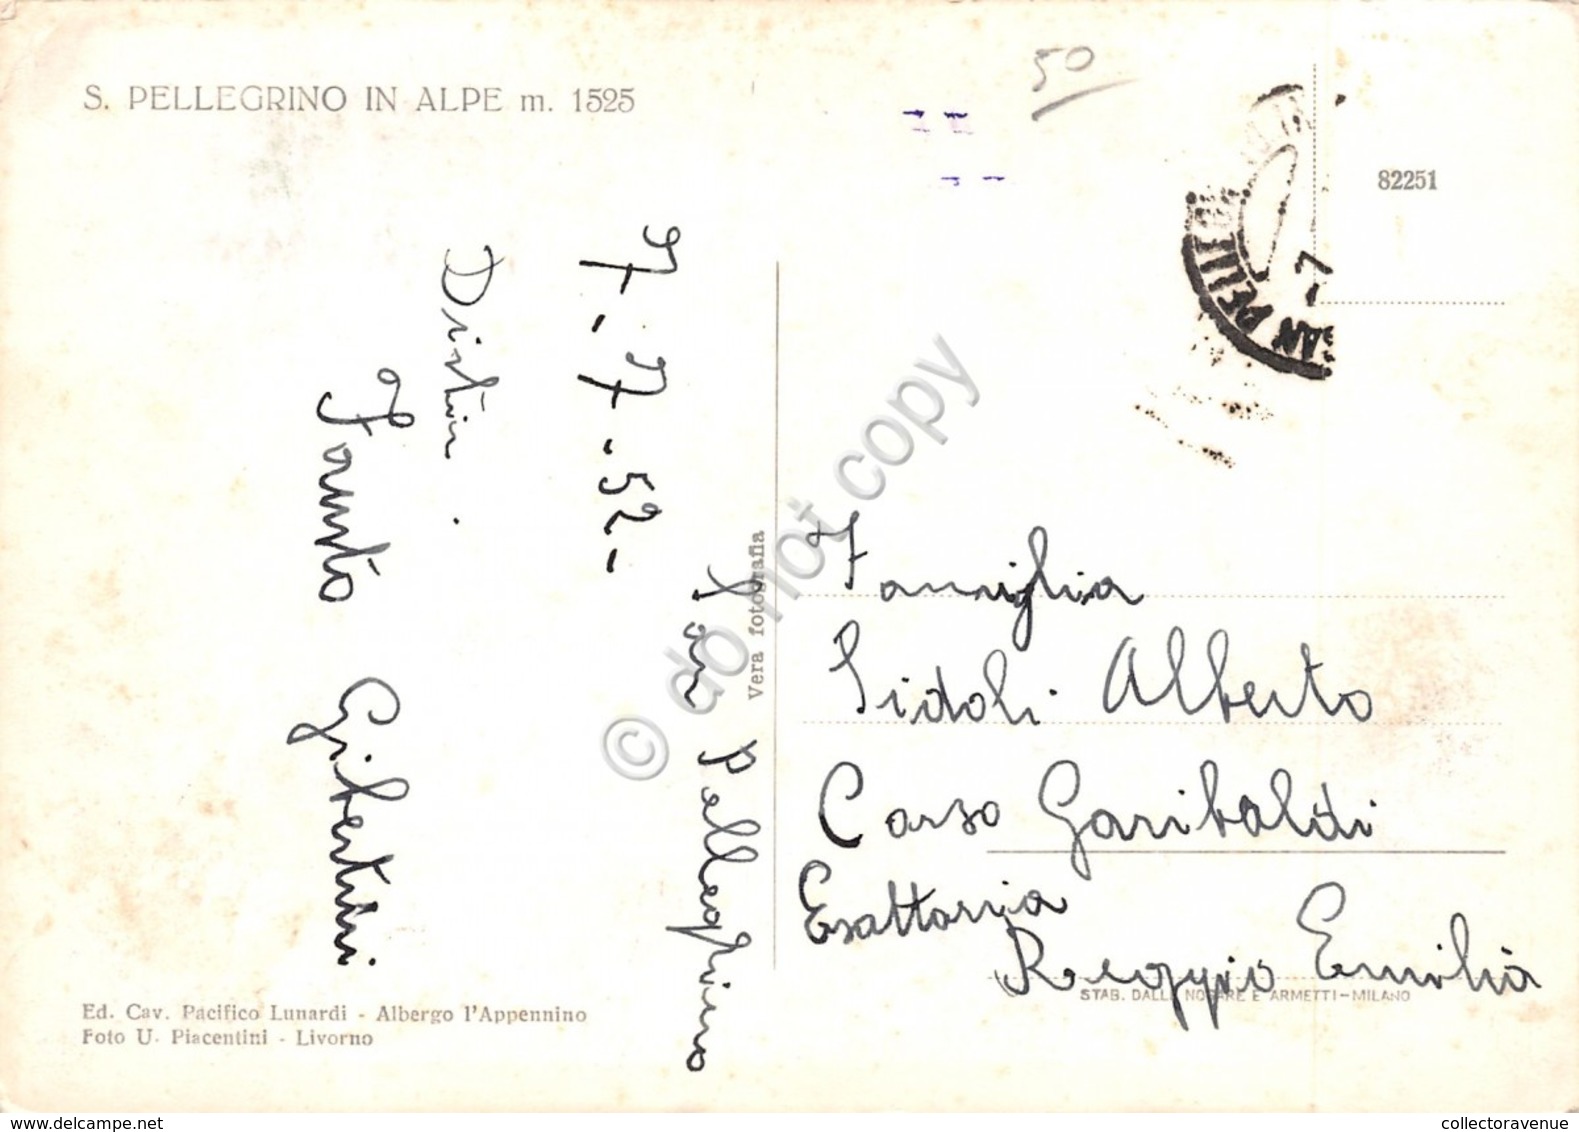 S. PELLEGRINO IN ALPE m. 1525
50
82251
SAN PELLE
-7
San Pellegrino
7-7-52-
Distin.
Fausto Gibertini
Vera fotografia
Famiglia
Sidoli Alberto
Corso Garibaldi
Esattoria
Reggio Emilia
STAB. DALLE NOGARE E ARMETTI-MILANO
Ed. Cav. Pacifico Lunardi - Albergo l'Appennino
Foto U. Piacentini - Livorno
© do not copy
www.delcampe.net
collectoravenue